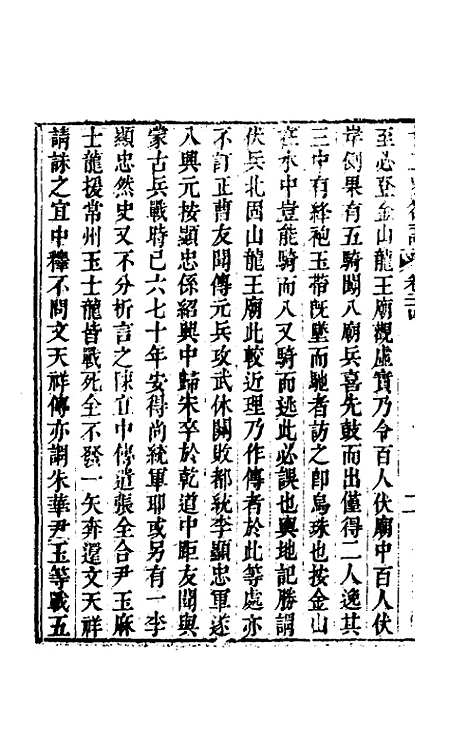 至必登金山龍王廟觀虛實乃令百人伏廟中百人伏
岸側果有五騎闖入廟兵喜先鼓而出僅得二人逸其
三中有絳袍玉帶旣墜而馳者訪之卽烏珠也按金山
在水中豈能騎而入又騎而逃此必誤也輿地記勝謂
伏兵北固山龍王廟此較近理乃作傳者於此等處亦
不訂正曹友聞傳元兵攻武休關敗都統李顯忠軍遂
入興元按顯忠係紹興中歸宋卒於乾道中距友聞與
蒙古兵戰時已六七十年安得尚統軍耶或另有一李
顯忠然史又不分析言之陳宜中傳遣張全合尹玉麻
士龍援常州玉士龍皆戰死全不發一矢奔還文天祥
請誅之宜中釋不問文天祥傳亦謂朱華尹玉等戰五